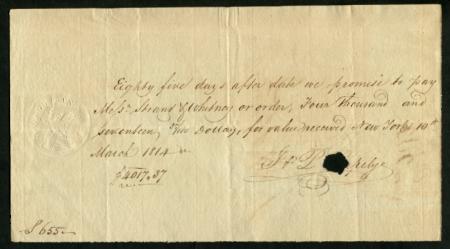 Eighty five days after date we promise to pay
Messrs. Strand & Whitney or order, Four Thousand and
seventeen Dollars, for value received New York 10th
March 1814
$4017,37
$655